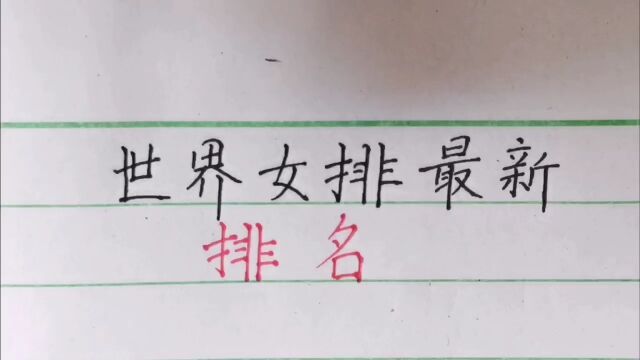 世界女排最新
排名